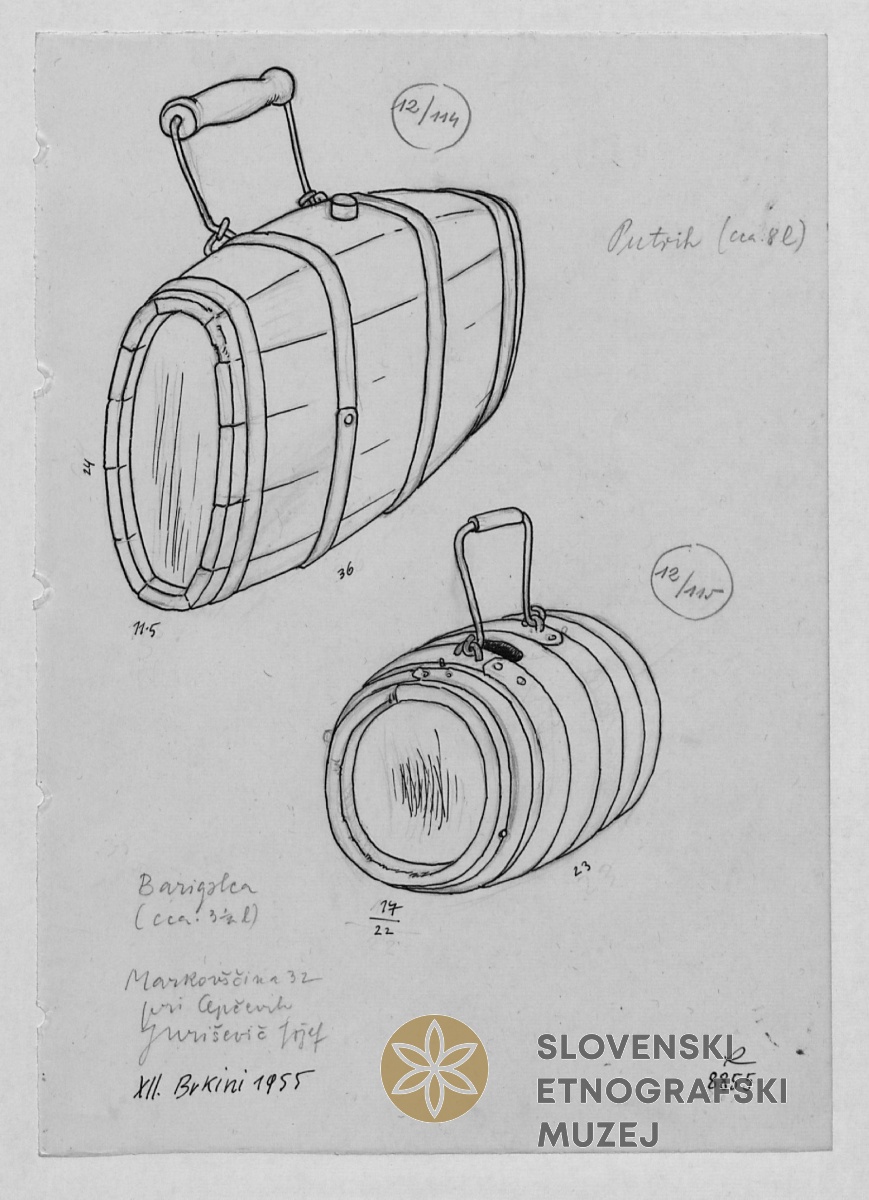 12/114
Putrih (cca. 8 l)
24
36
11·5
12/115
23
17
22
Barigəlca
(cca. 3½ l)
Markovščina 32
pri Čepčevih
Jurišević Josef
XII. Brkini 1955
R
8855
SLOVENSKI
ETNOGRAFSKI
MUZEJ